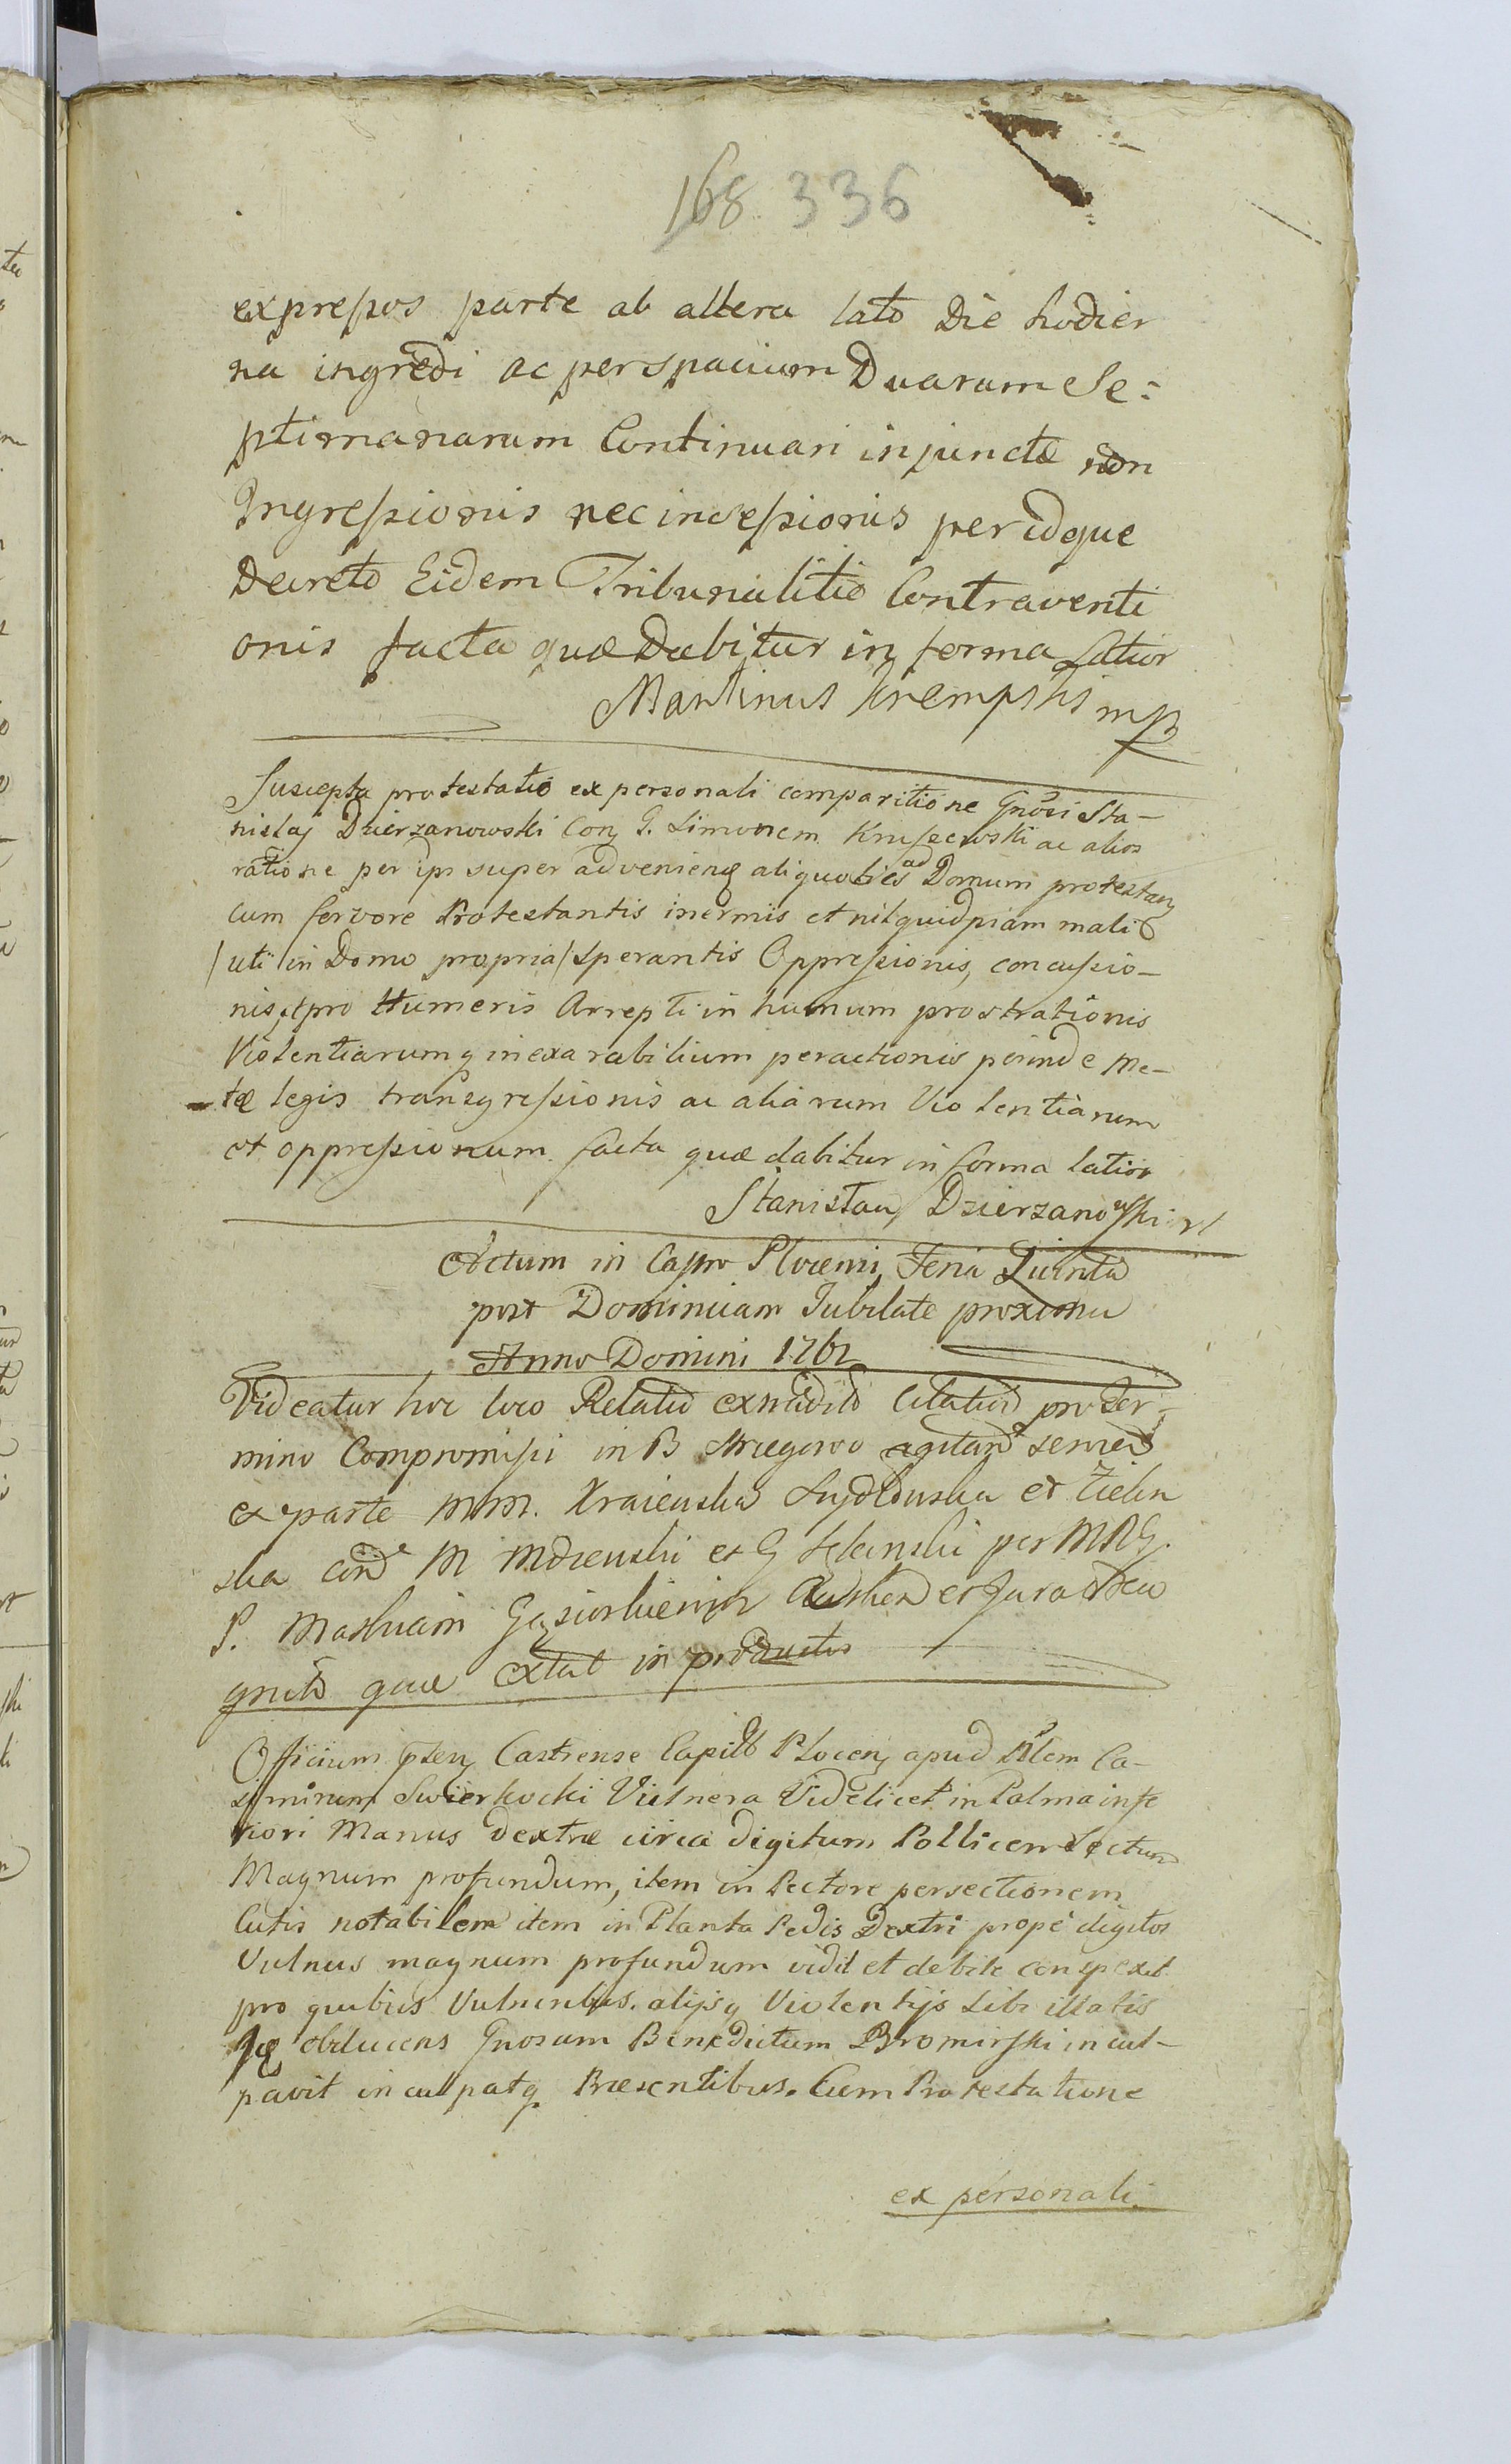 168 336
expressos parte ab altera lato die hodier
na ingredi ac per spacium Duarum Se:
ptimanarum Continuari injunctæ non
Ingressionis nec incessionis per idque
Decreto Eidem Tribunalitio Contraventi
onis facta quæ Dabitur in forma latior
Martinus Krempski mp
Suscepta protestatio ex personali comparitione Gnosi Sta-
nislaj Dzierzanowski Con G. Simonem Krusecwski ac alios
ratione per ips super advenienq aliquoties ad Domum protestanq
cum fervore Protestantis inermis et nil quidpiam mali
/uti in Domo propria/ Sperantis Oppressionis, concussio-
nis, pro Humeris Arrepti in humum prostrationis
Violentiarumq inexarabilium peractionis perinde me-
tæ legis transgressionis ac aliarum Violentiarum
et oppressionum facta quæ dabitur in forma latior
Stanislaus Dzierzanowski
Actum in Castro Plocensi Feria Quinta
post Dominicam Jubilate proxima
Anno Domini 1762
Videatur hoc loco Relatio citatio pro Ter-
mino Compromissi in B
ex parte MM. et
M et G per MRG.
P.
quæ extat in productis
Officium Castrense Capit Plocen apud Ca-
simirum Swierkocki Vulnera Videlicet in Palma infe
riori Manus dextræ circa digitum Pollicem
Magnum profundum, item in Pectore persectionem
Cutis notabilem item in Planta Pedis Dextri prope digitos
Vulnus magnum profundum vidit et debite conspexit
pro quibus Vulneribus. alijsq Violentijs Sibi illatis
obducens Gnosum Benedictum Bromirski incul-
pavit inculpatq Præsentibus. Cum Protestatione
ex personali